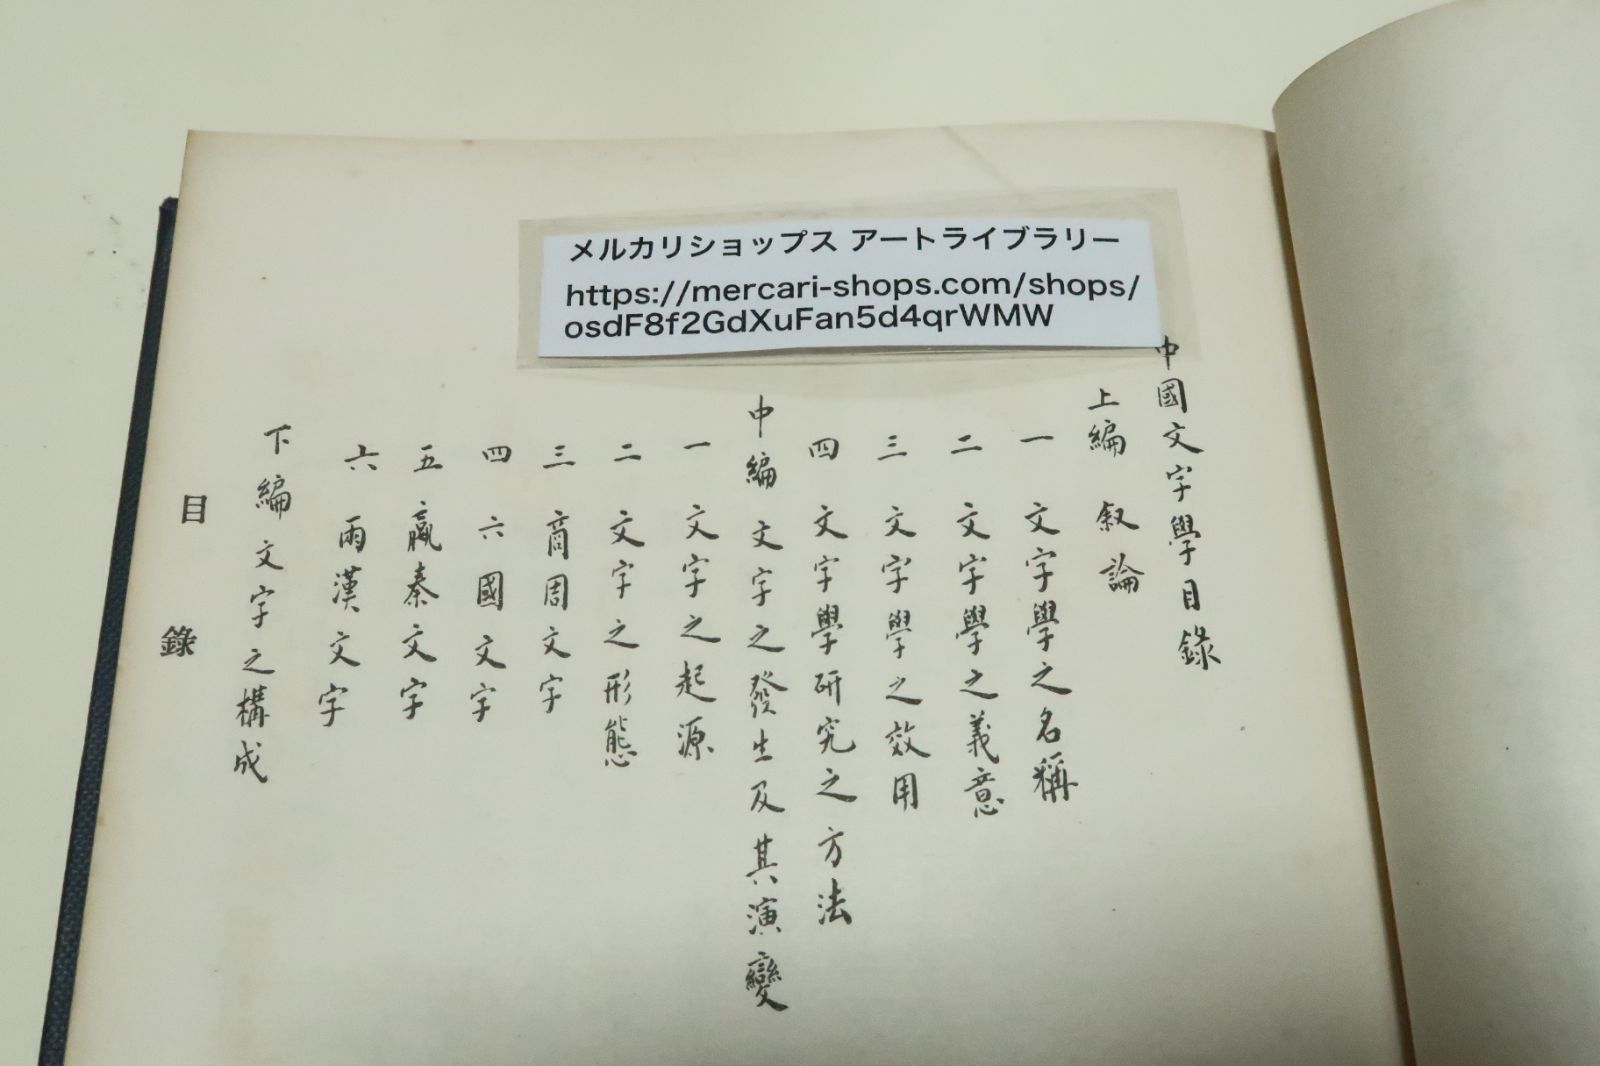 メルカリショップス アートライブラリー
https://mercari-shops.com/shops/
osdF8f2GdXuFan5d4qrWMW
中國文字學目錄
上編 叙論
一 文字學之名稱
二 文字學之義意
三 文字學之效用
四 文字學研究之方法
中編 文字之發生及其演變
一 文字之起源
二 文字之形態
三 商周文字
四 六國文字
五 嬴秦文字
六 兩漢文字
下編 文字之構成
目錄